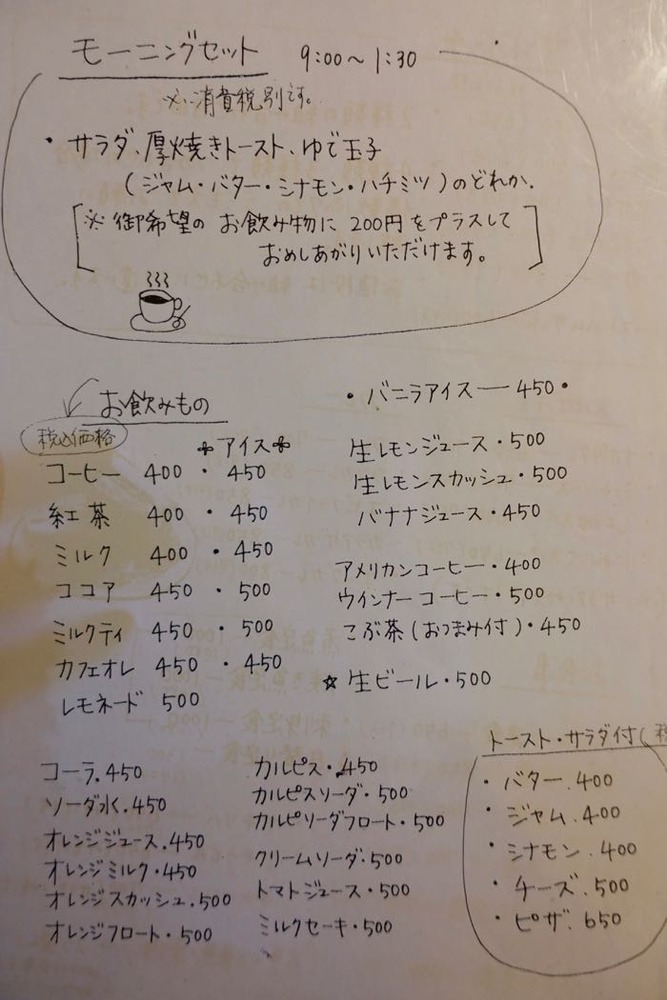 モーニングセット 9:00〜1:30
※消費税別です。
・サラダ、厚焼きトースト、ゆで玉子
(ジャム・バター・シナモン・ハチミツ)のどれか.
[※御希望の お飲み物に 200円をプラスして
おめしあがりいただけます。]
お飲みもの
税込価格
アイス
コーヒー 400 ・ 450
紅茶 400 ・ 450
ミルク 400 ・ 450
ココア 450 ・ 500
ミルクティ 450 ・ 500
カフェオレ 450 ・ 450
レモネード 500
・バニラアイス — 450・
生レモンジュース・500
生レモンスカッシュ・500
バナナジュース・450
アメリカンコーヒー・400
ウインナーコーヒー・500
こぶ茶(おつまみ付)・450
☆生ビール・500
コーラ.450
ソーダ水.450
オレンジジュース.450
オレンジミルク・450
オレンジスカッシュ.500
オレンジフロート・500
カルピス・450
カルピスソーダ・500
カルピソーダフロート・500
クリームソーダ・500
トマトジュース・500
ミルクセーキ・500
トースト・サラダ付(税
・バター.400
・ジャム.400
・シナモン.400
・チーズ.500
・ピザ.650